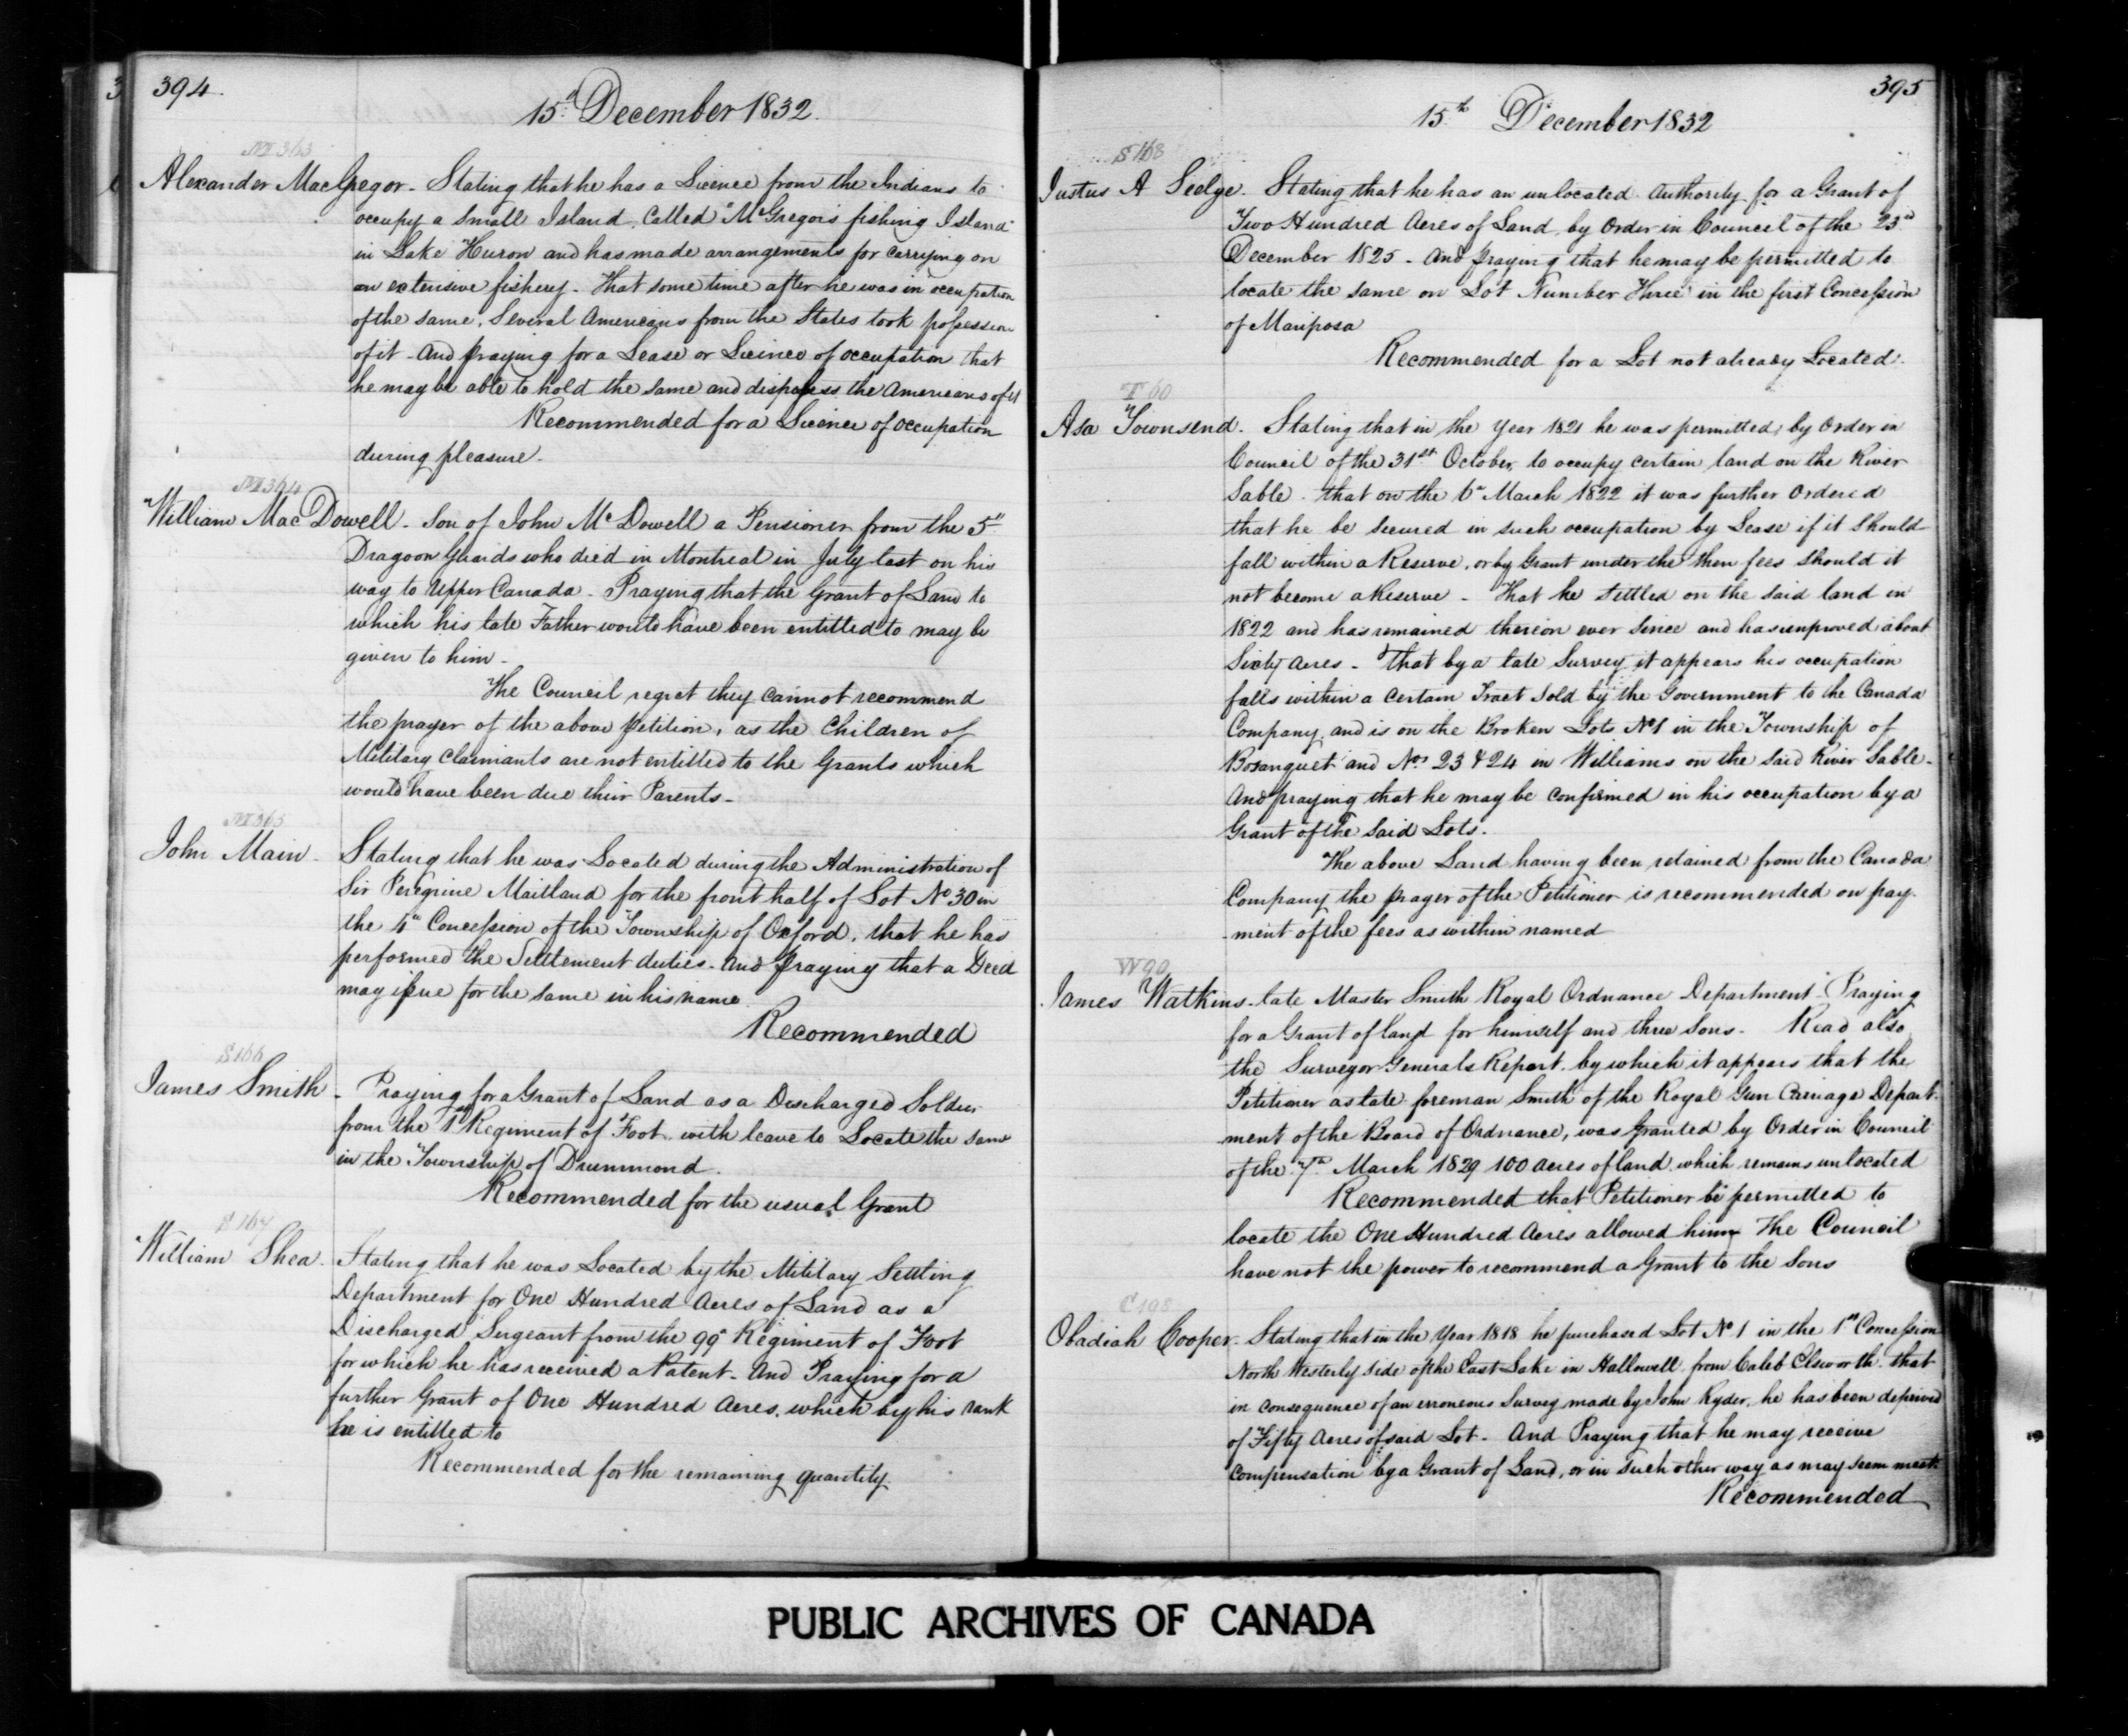 394.
15th December 1832.
M 363
Alexander MacGregor - Stating that he has a Licence from the Indians to
occupy a small Island, called "McGregors fishing Island"
in Lake Huron and has made arrangements for carrying on
an extensive fishery - That some time after he was in occupation
of the same, Several Americans from the States took possession
of it - And praying for a Lease or Licence of occupation that
he may be able to hold the same and dispossess the Americans of it
Recommended for a Licence of occupation
during pleasure.
M 364
William Mac Dowell - Son of John Mc Dowell a Pensioner from the 5th
Dragoon Guards who died in Montreal in July last on his
way to Upper Canada - Praying that the Grant of Land to
which his late Father would have been entitled to may be
given to him -
The Council regret they cannot recommend
the prayer of the above petition, as the Children of
Military Claimants are not entitled to the Grants which
would have been due their Parents -
M 365
John Main - Stating that he was Located during the Administration of
Sir Peregrine Maitland for the front half of Lot No 30 in
the 4th Concession of the Township of Oxford, that he has
performed the Settlement duties - And praying that a Deed
may issue for the same in his name
Recommended
S 166
James Smith - Praying for a Grant of Land as a Discharged Soldier
from the 1st Regiment of Foot, with leave to Locate the same
in the Township of Drummond.
Recommended for the usual Grant
S 167
William Shea - Stating that he was Located by the Military Settling
Department for One Hundred Acres of Land as a
Discharged Sergeant from the 99th Regiment of Foot
for which he has received a Patent - And Praying for a
further Grant of One Hundred Acres, which by his rank
he is entitled to
Recommended for the remaining quantity.
395
15th December 1832
S 168
Justus A Seelye. Stating that he has an unlocated Authority for a Grant of
Two Hundred Acres of Land by Order in Council of the 23rd
December 1825 - And praying that he may be permitted to
locate the same on Lot Number Three in the first Concession
of Mariposa
Recommended for a Lot not already Located.
T 60
Asa Townsend. Stating that in the Year 1821 he was permitted, by Order in
Council of the 31st October, to occupy certain land on the River
Sable - that on the 6th March 1822 it was further Ordered
that he be secured in such occupation by Lease if it should
fall within a Reserve, or by Grant under the then fees should it
not become a Reserve - That he settled on the said land in
1822 and has remained thereon ever since and has improved about
Sixty Acres - That by a late Survey it appears his occupation
falls within a certain Tract Sold by the Government to the Canada
Company, and is on the Broken Lots No 1 in the Township of
Bosanquet and Nos 23 & 24 in Williams on the said River Sable -
And praying that he may be confirmed in his occupation by a
Grant of the said Lots.
The above Land having been retained from the Canada
Company the prayer of the Petitioner is recommended on pay-
-ment of the fees as within named
W 90
James Watkins - late Master Smith Royal Ordnance Department - Praying
for a Grant of land for himself and three Sons - Read also
the Surveyor Generals Report, by which it appears that the
Petitioner as late foreman Smith of the Royal Gun Carriage Depart-
ment of the Board of Ordnance, was Granted by Order in Council
of the 7th March 1829 100 Acres of land, which remains unlocated
Recommended that Petitioner be permitted to
locate the One Hundred Acres allowed him The Council
have not the power to recommend a Grant to the Sons
C 198
Obadiah Cooper - Stating that in the Year 1818 he purchased Lot No 1 in the 1st Concession
North Westerly side of the East Lake in Hallowell from Caleb Elsworth - that
in consequence of an erroneous Survey made by John Ryder, he has been deprived
of Fifty Acres of said Lot - And Praying that he may receive
compensation by a Grant of Land, or in such other way as may seem meet.
Recommended
PUBLIC ARCHIVES OF CANADA